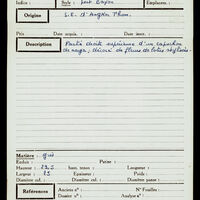 Indice : Style : post Bayon Emplacem. :
Origine S.E. d'Angkor Thom.
Prix : Date acquis. : Date inscr. :
Description Partie droite supérieure d'un capuchon
de naga, décoré de fleurs de lotus stylisées.
Matière : grès
Poids : Peint :
Hauteur : Longueur :
Largeur : Epaisseur : Poids :
Diamètre col. : Diamètre panse :
Références Anciens n° : N° Fouilles :
Dossier n° : Analyse n° :